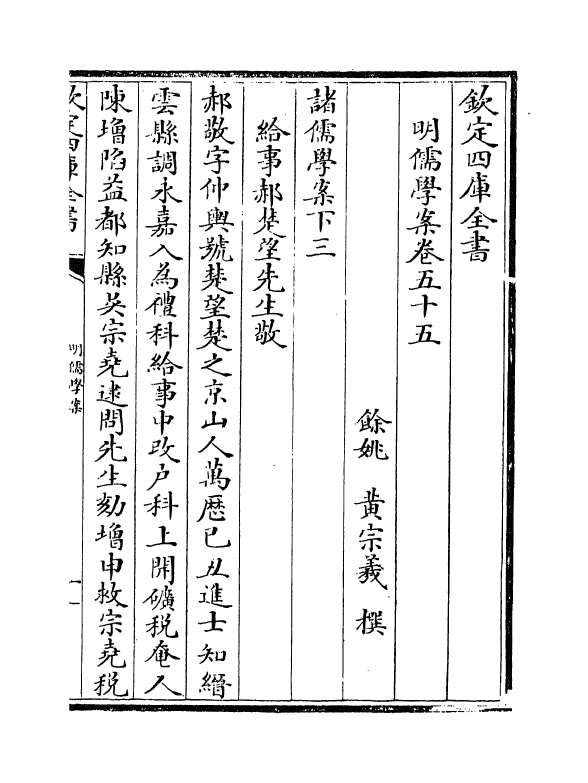 欽定四庫全書
明儒學案卷五十五
餘姚　黄宗羲　撰
諸儒學案下三
給事郝楚望先生敬
郝敬字仲輿號楚望楚之京山人萬厯已丑進士知縉
雲縣調永嘉入為禮科給事中改户科上開礦税奄人
陳增陷益都知縣吳宗堯逮問先生劾增申救宗堯税
欽定四庫全書
明儒學案
一